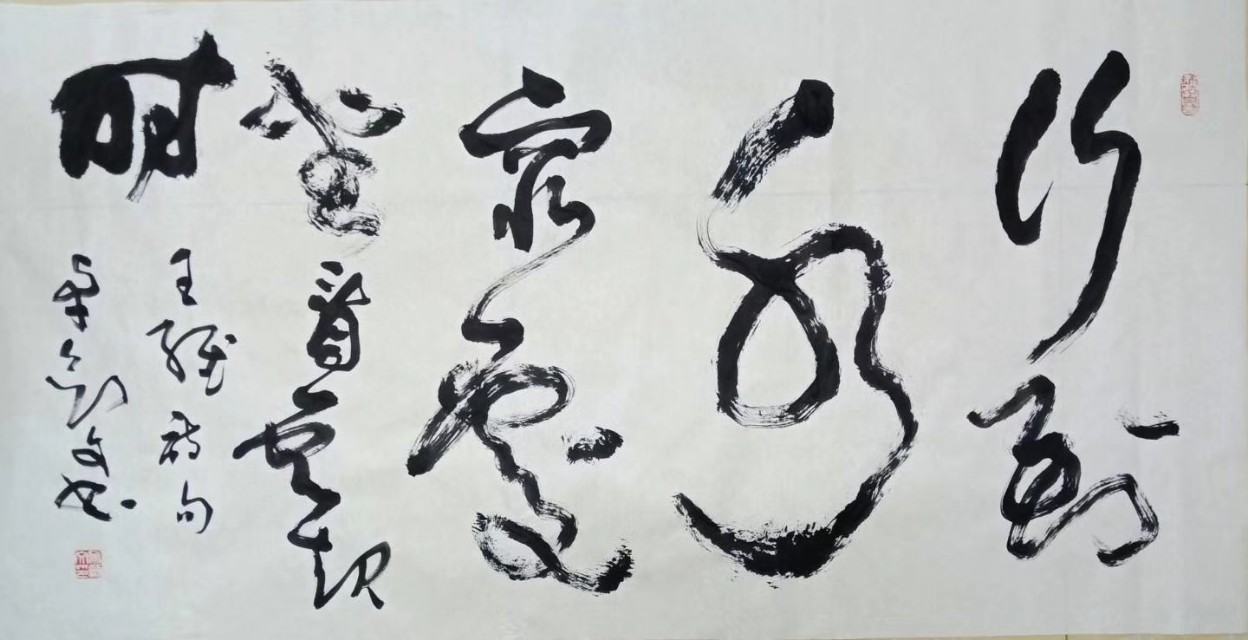 行到
水
穷處
坐看云起
时
王维诗句